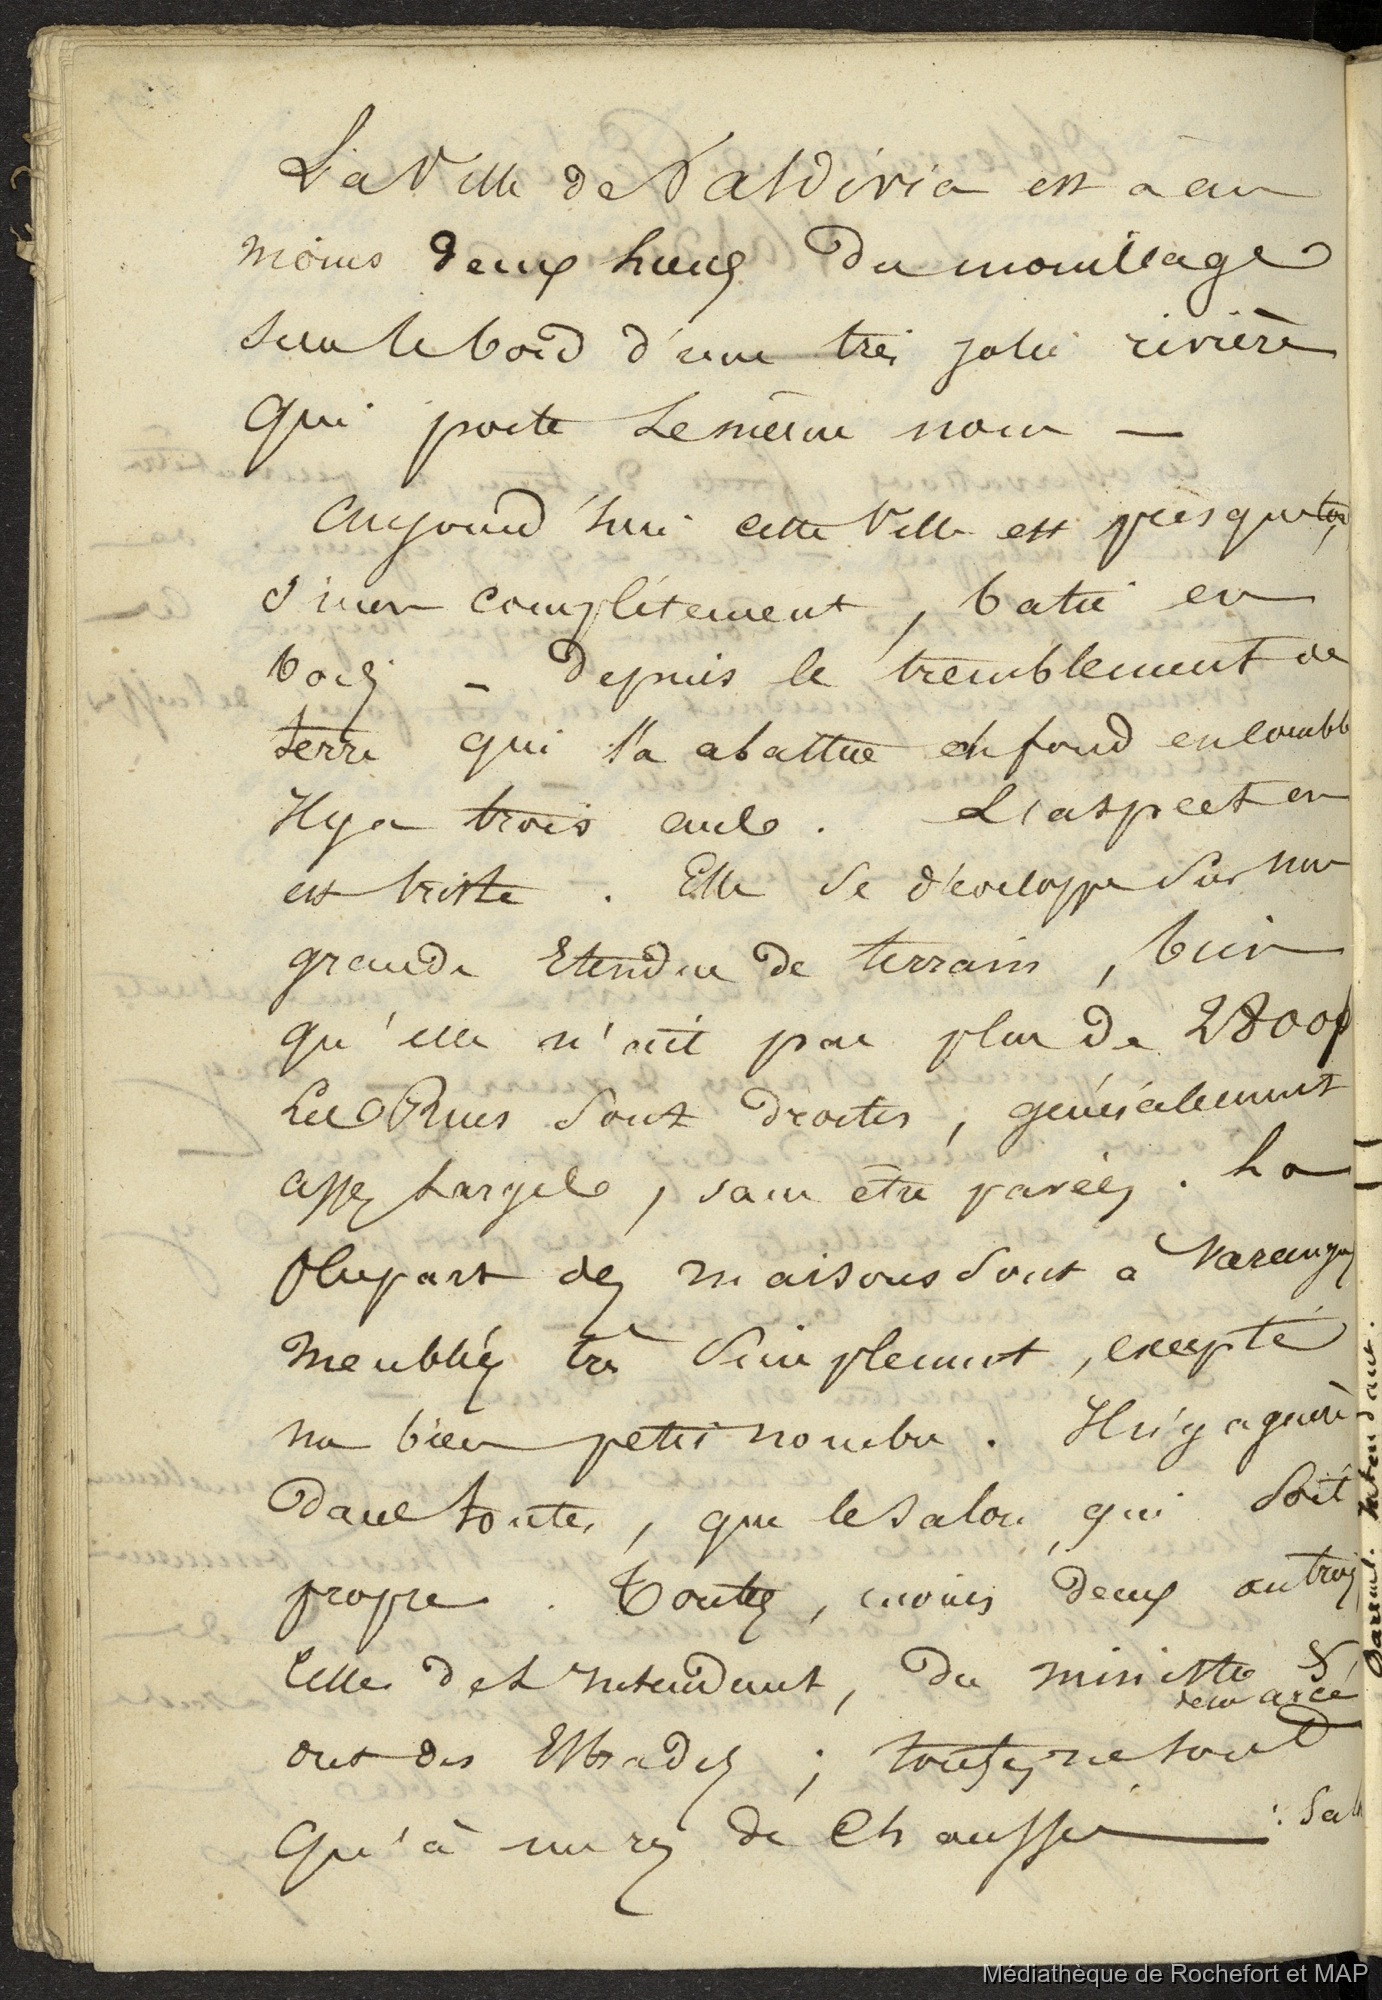 La Ville de Valdivia est à au
moins deux lieues du mouillage
sur le bord d'une très jolie rivière
qui porte le même nom —
Aujourd'hui cette Ville est presque
sinon complétement, batie en
bois – depuis le tremblement de
terre qui l'a abattue de fond en comble
Il y a trois ans. L'aspect en
est triste. Elle se développe sur une
grande Etendue de terrain, bien
qu'elle n'ait pas plus de 2800
Les Rues sont droites, généralement
assez larges, sans être pavées. La
plupart des maisons sont à
meublées très simplement, excepté
un bien petit nombre. Il n'y a guère
dans toutes, que le salon, qui soit
propre. Toutes, moins deux ou trois
Celles de L'Intendant, du ministre &
ont des Estrades; toutes ne sont
Qu'à un rez de Chaussée
: Sal
Intendant.
Médiathèque de Rochefort et MAP